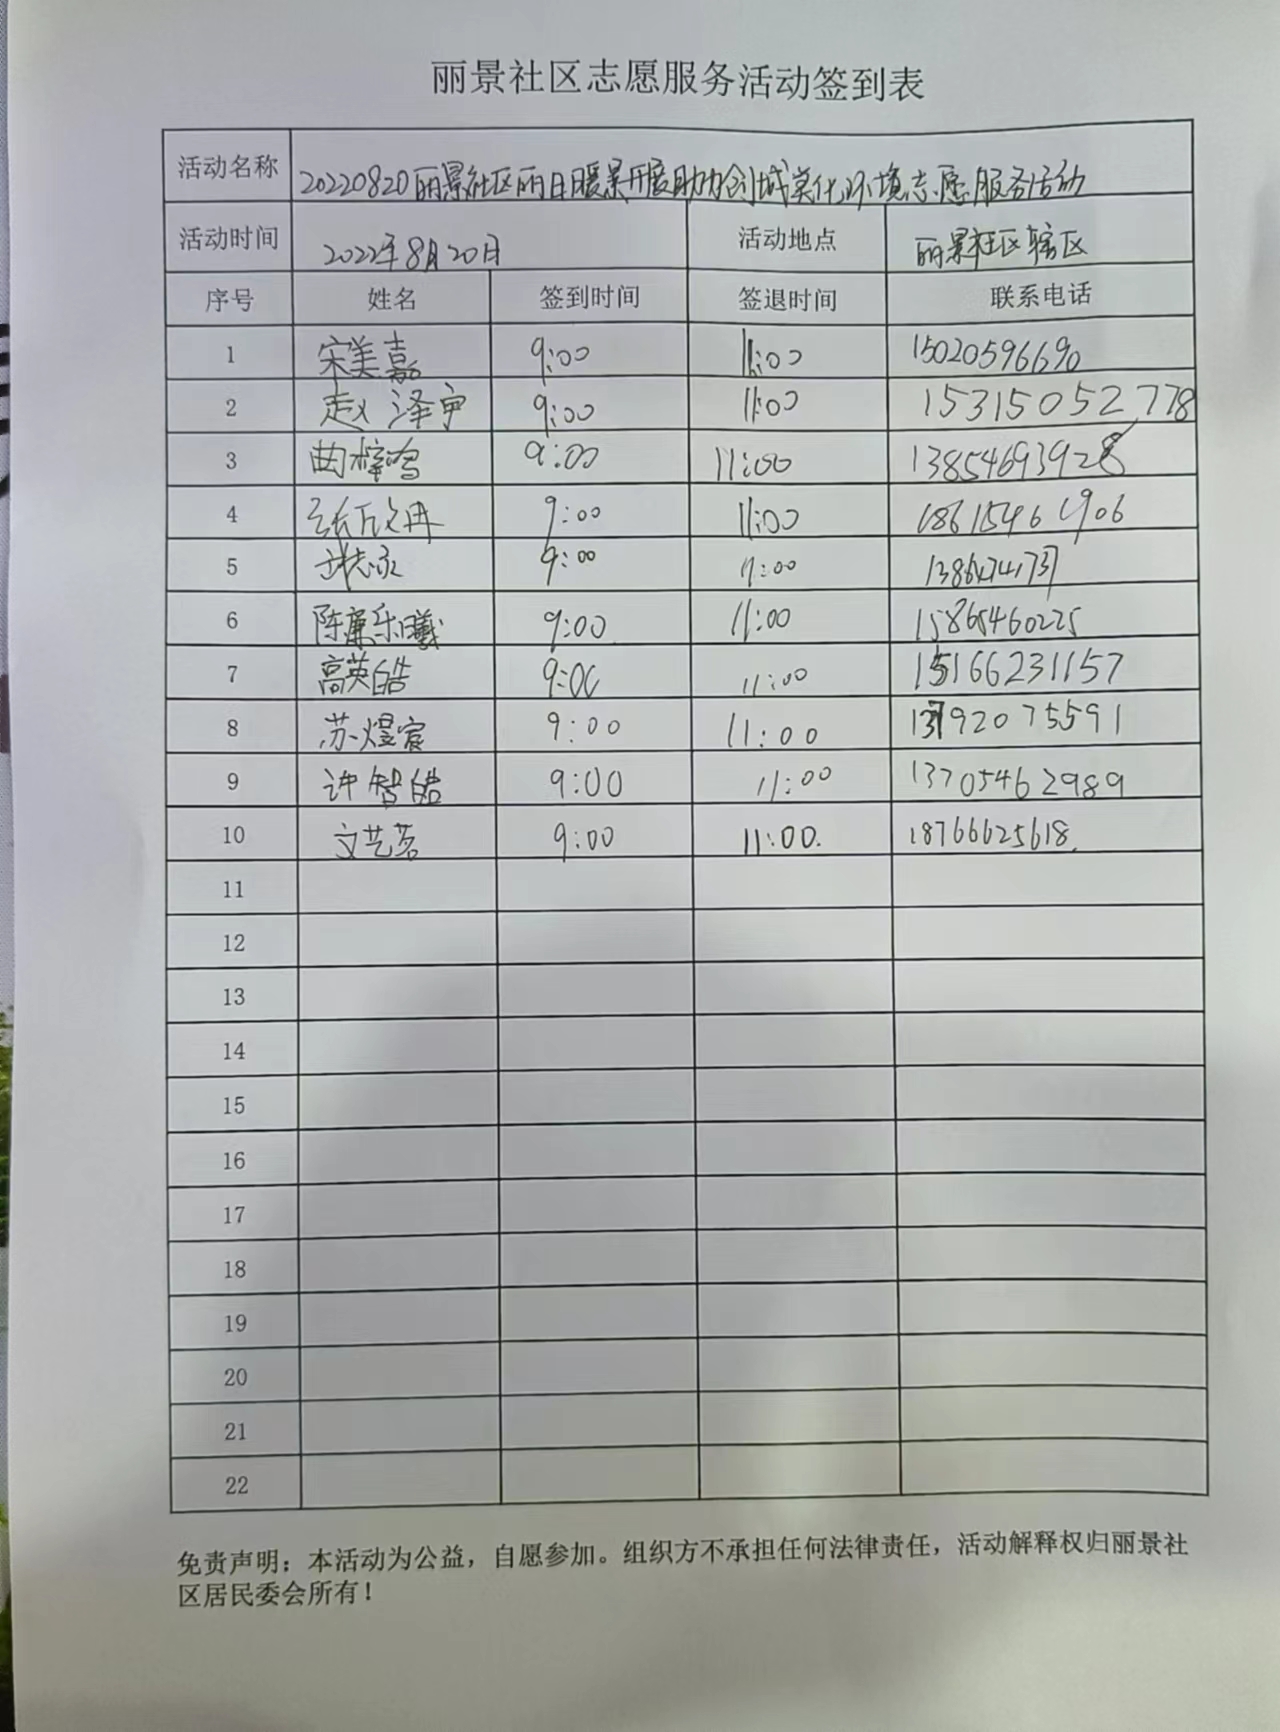 丽景社区志愿服务活动签到表
活动名称 20220820丽景社区丽日暖景开展助力创城美化环境志愿服务活动
活动时间 2022年8月20日 活动地点 丽景社区辖区
序号 姓名 签到时间 签退时间 联系电话
1 宋美嘉 9:00 11:00 15020596690
2 赵泽宇 9:00 11:00 15315052778
3 曲梓鸣 9:00 11:00 13854693928
4 9:00 11:00 18615461906
5 9:00 11:00
6 陈廉乐曦 9:00 11:00 15865460225
7 高英皓 9:00 11:00 15166231157
8 苏煜宸 9:00 11:00 13792075591
9 许智皓 9:00 11:00 13705462989
10 文艺茗 9:00 11:00. 18766625618.
11
12
13
14
15
16
17
18
19
20
21
22
免责声明：本活动为公益，自愿参加。组织方不承担任何法律责任，活动解释权归丽景社
区居民委会所有！